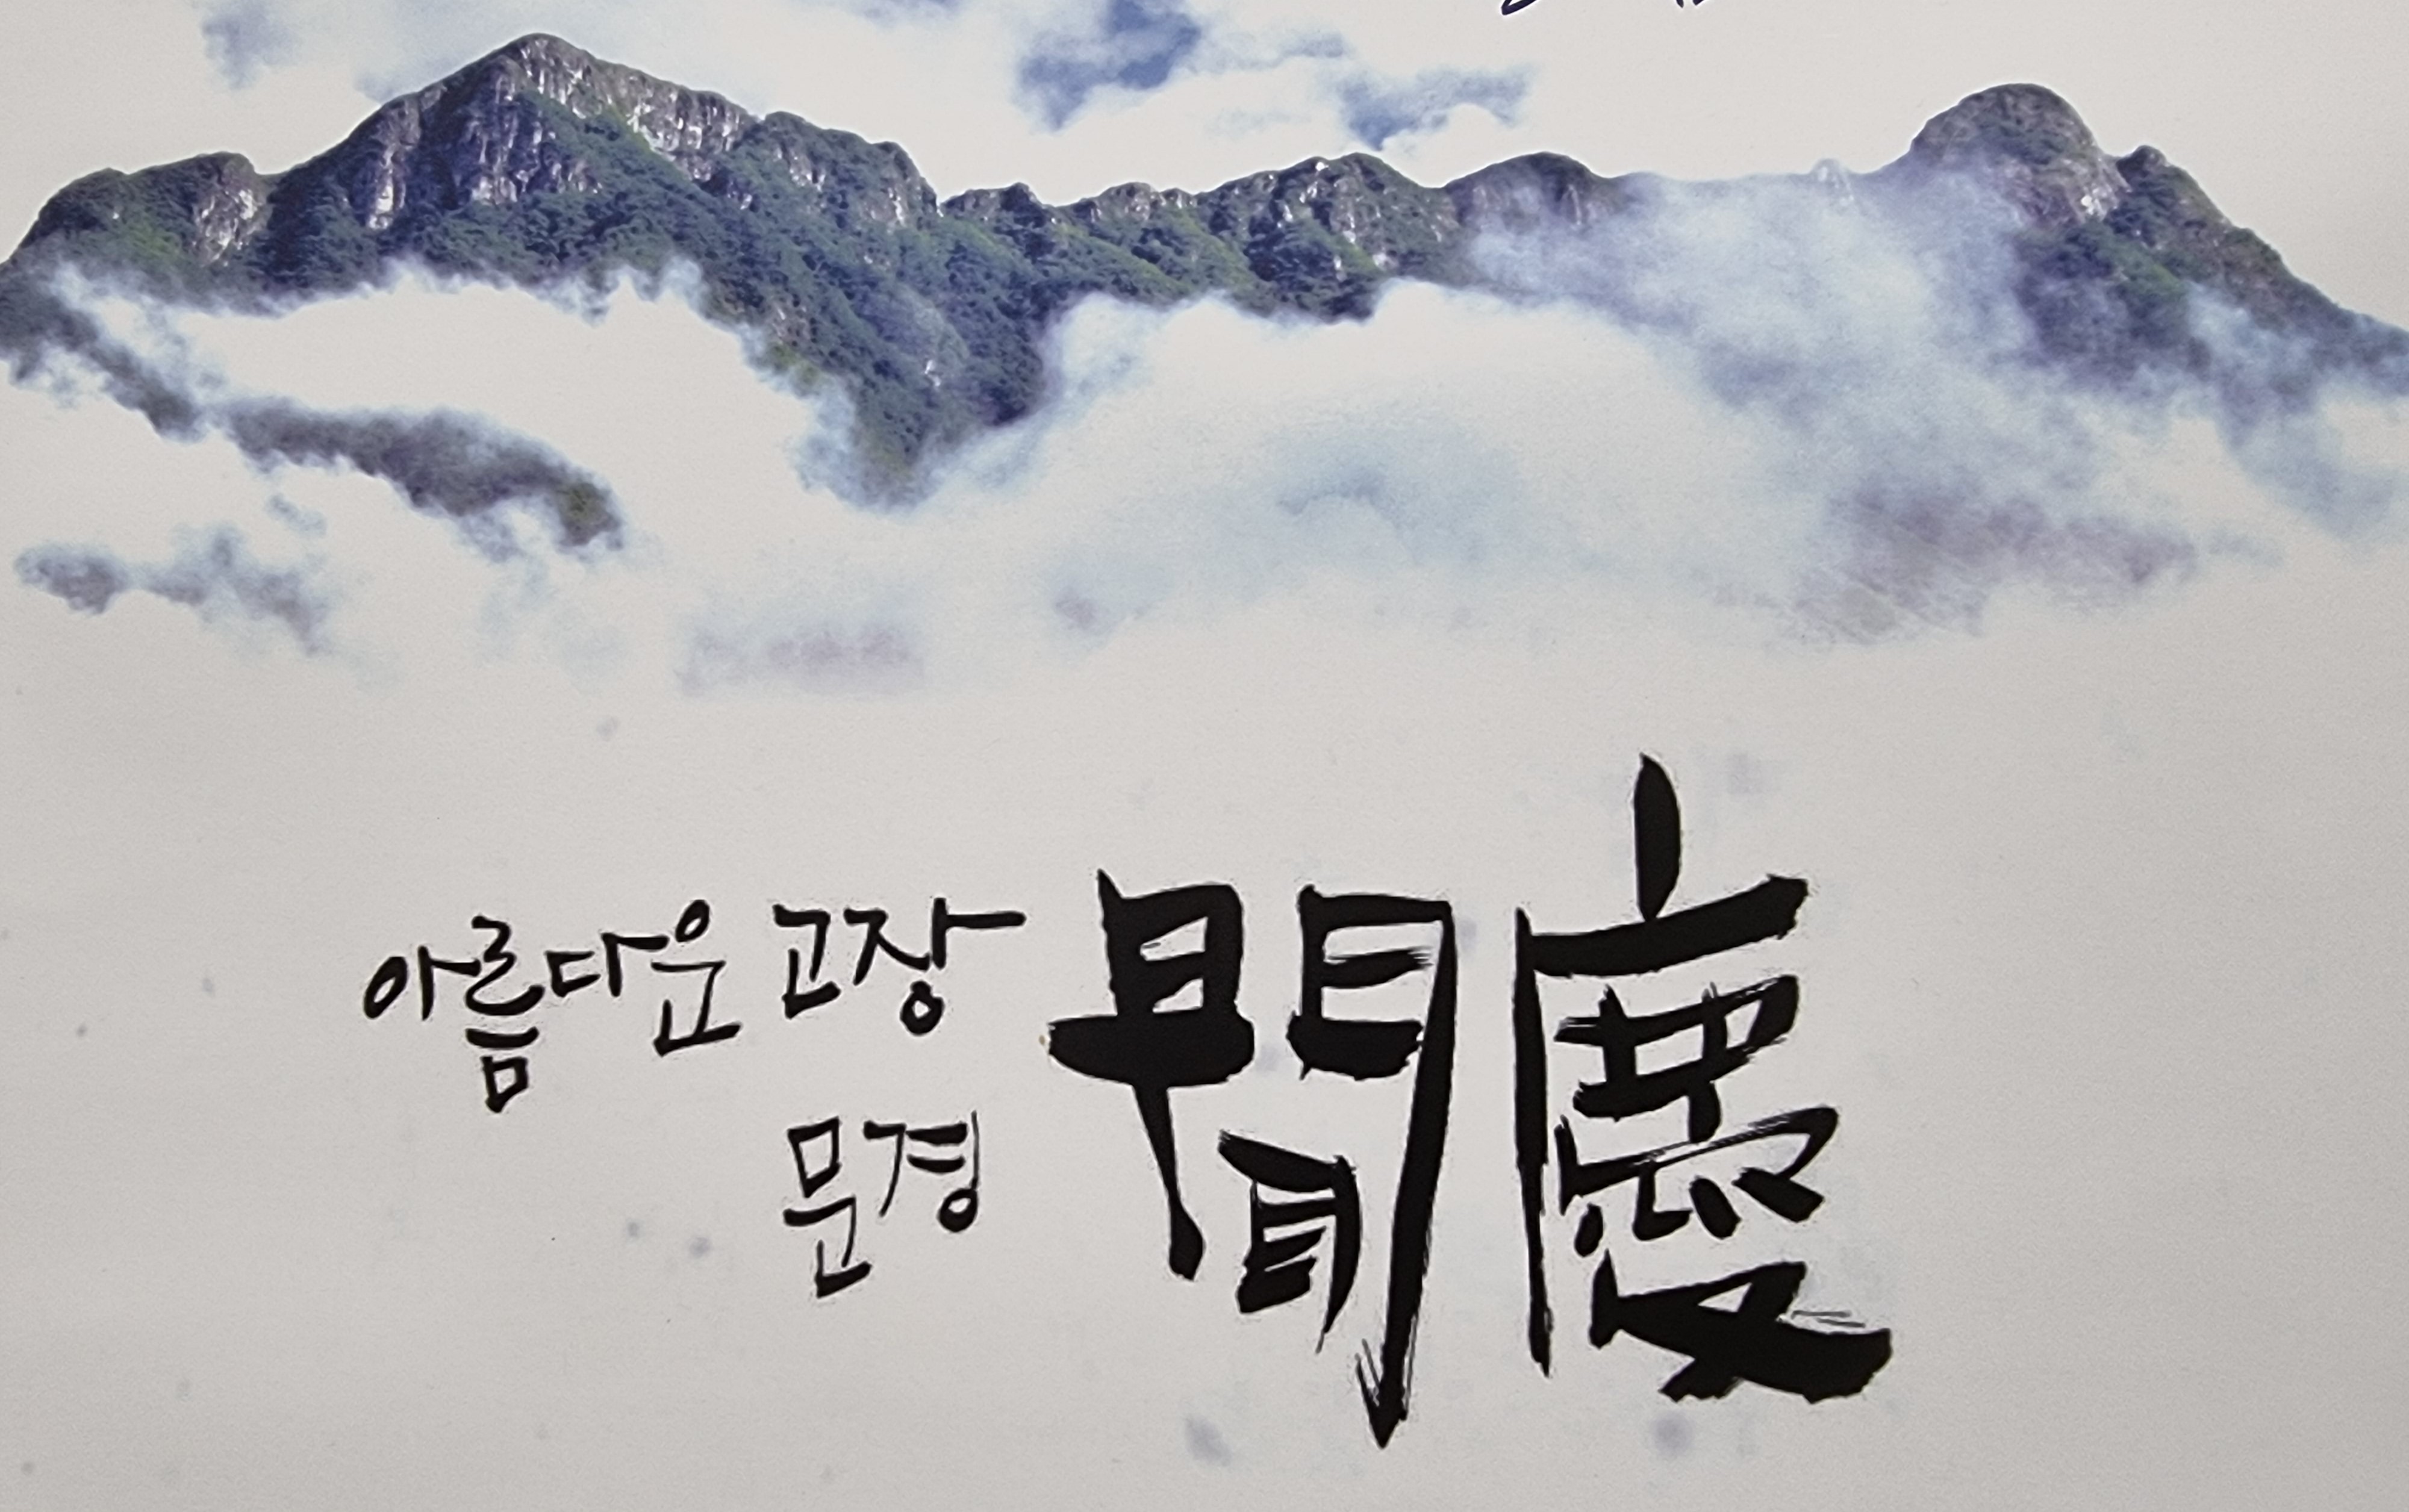 아름다운 고장
문경
聞慶